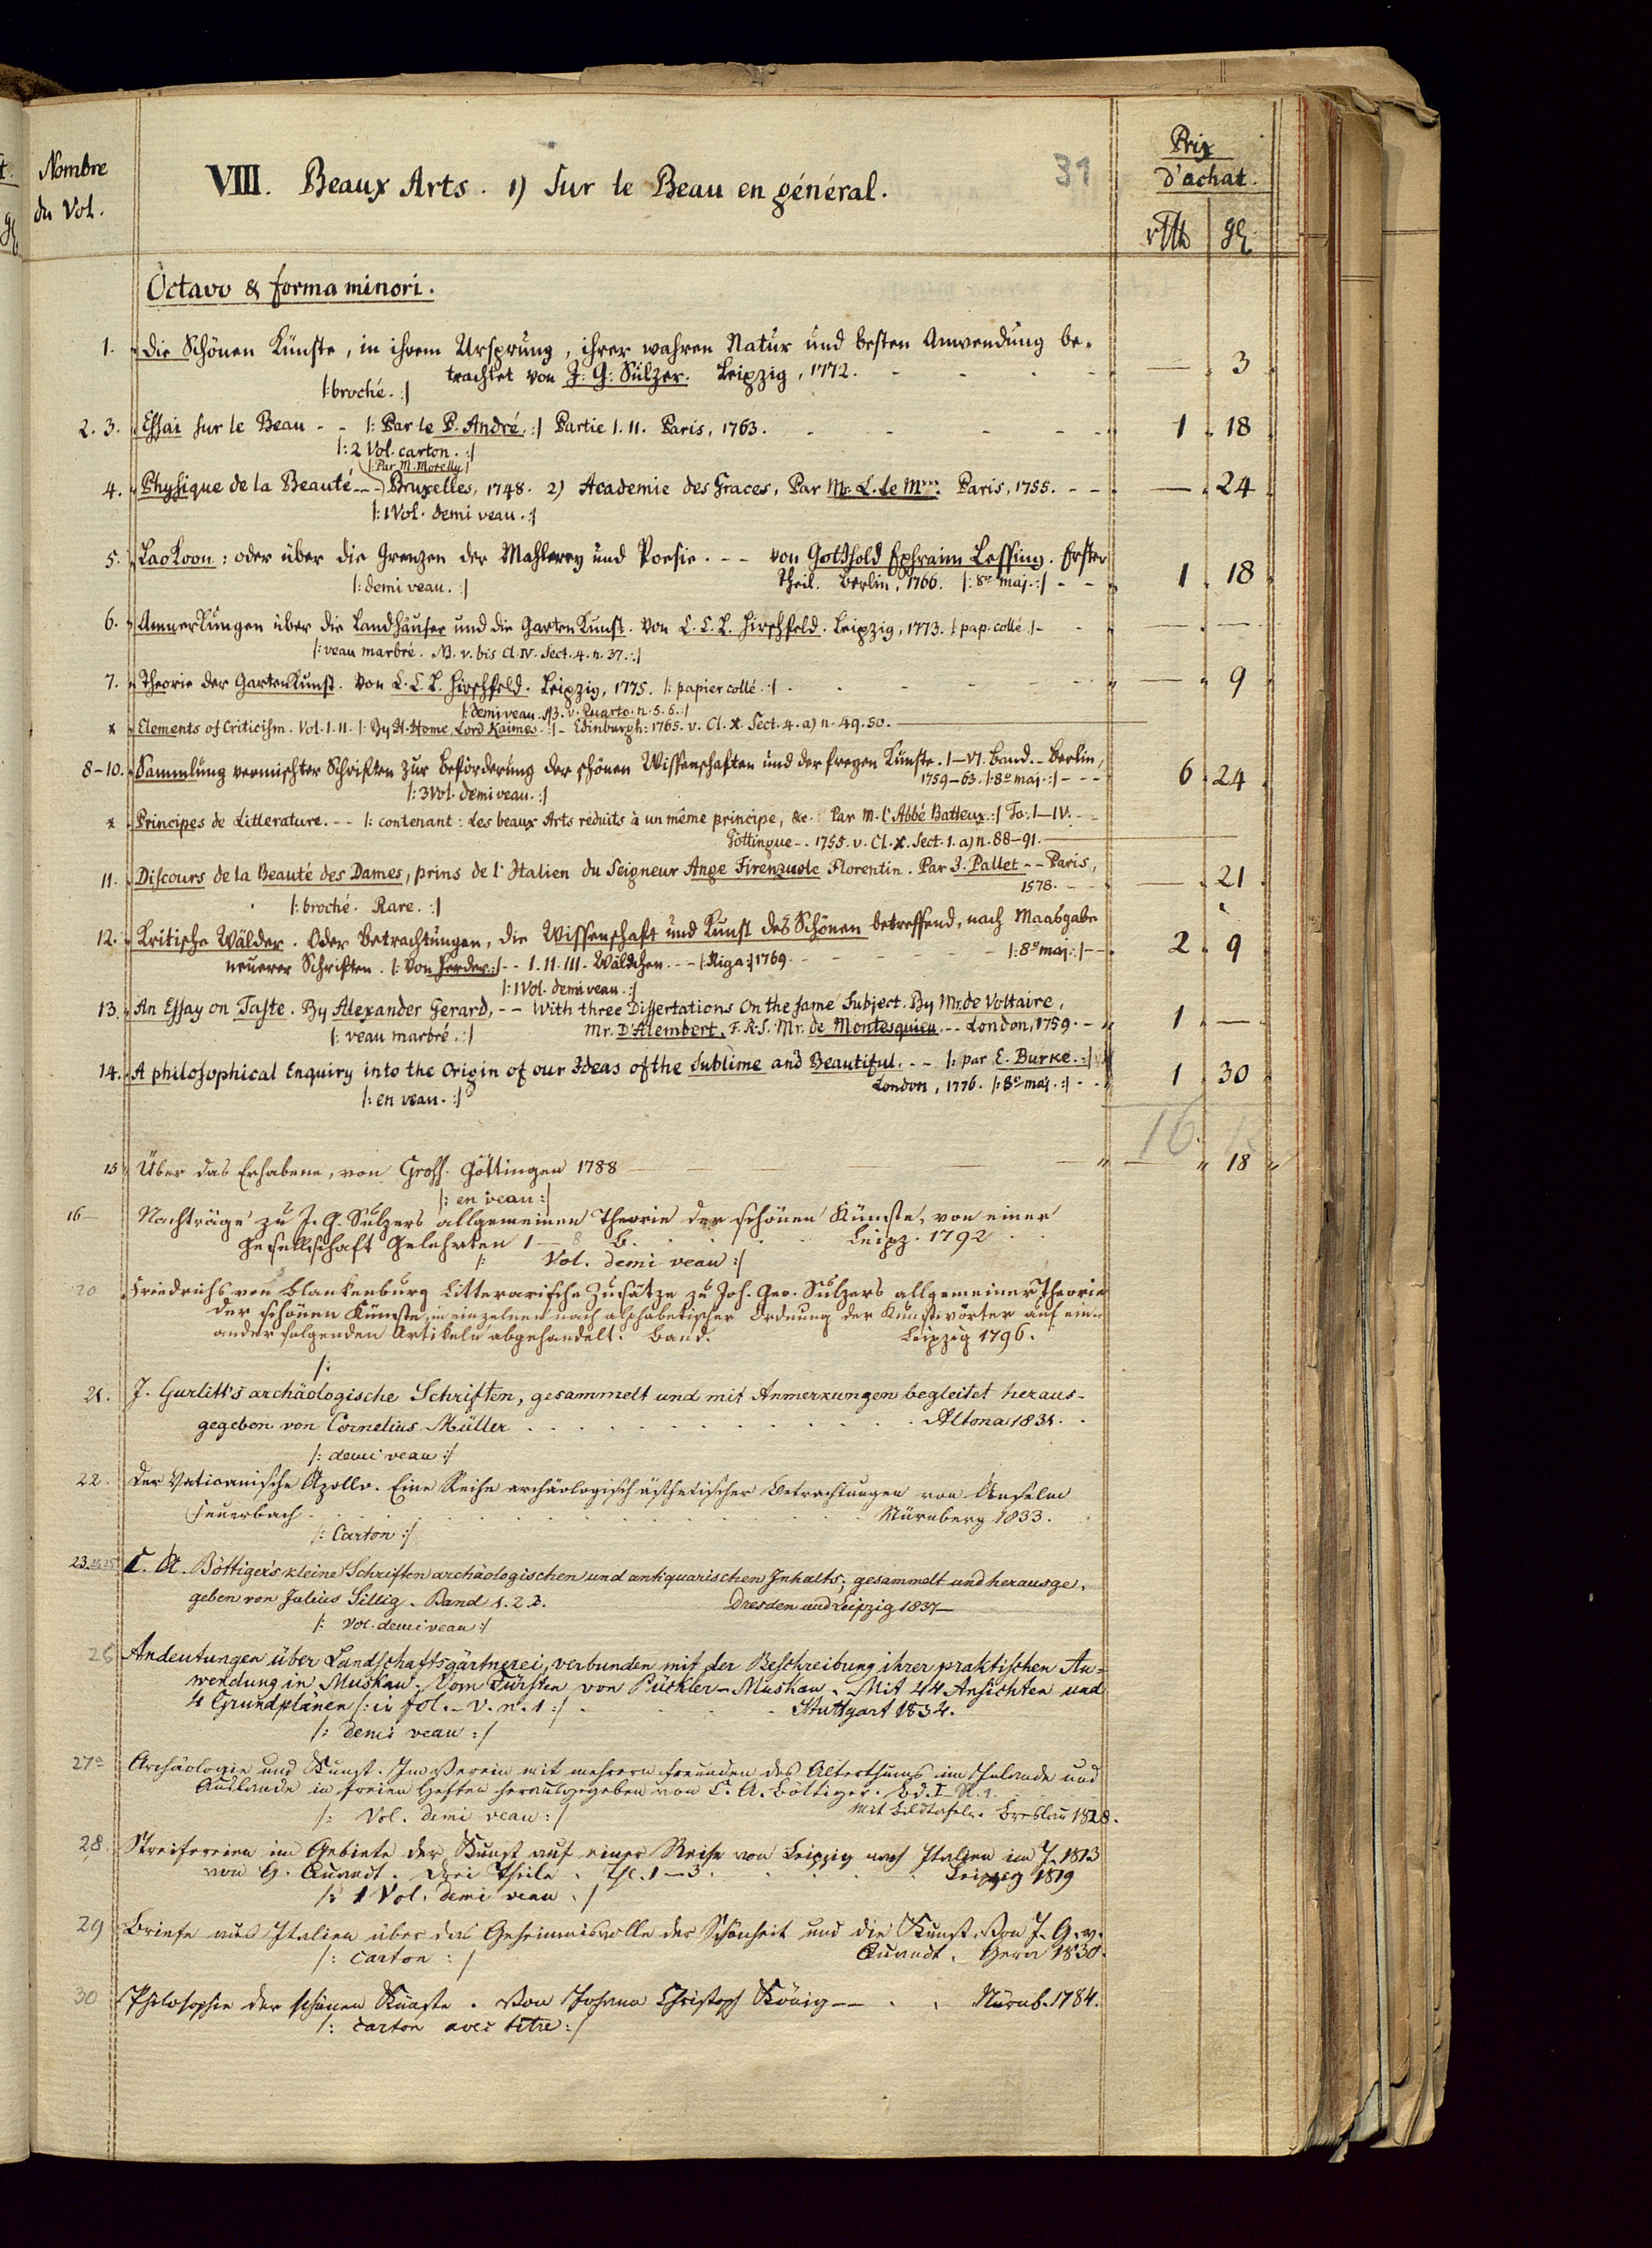 Nombre
du Vol.
VIII. Beaux Arts. 1) Sur le Beau en général.
31
Prix
d'achat.
rtlr gl
Octavo & forma minori.
1. Die Schönen Künste, in ihrem Ursprung, ihrer wahren Natur und besten Anwendung be-
trachtet von J: G: Sulzer. Leipzig, 1772. — 3
/: broché. :/
2. 3. Essai sur le Beau - - /: Par le P. André. :/ Partie I. II. Paris, 1763. 1 18
/: 2 Vol. carton. :/
/: Par M. Morelly /
4. Physique de la Beauté - - Bruxelles, 1748. 2) Academie des Graces, Par Mr. L. le M***. Paris, 1755. - - — 24
/: 1 Vol. demi veau. :/
5. Laokoon: oder über die Grenzen der Mahlerey und Poesie. - - von Gotthold Ephraim Lessing. Erster
Theil. Berlin, 1766. /: 8º maj. :/ - - 1 18
/: demi veau. :/
6. Anmerkungen über die Landhäuser und die Gartenkunst. Von C. C. L. Hirschfeld. Leipzig, 1773. /: pap. collé :/ - — —
/: veau marbré. NB. v. bis Cl. IV. Sect. 4. n. 37. :/
7. Theorie der Gartenkunst. Von C. C. L. Hirschfeld. Leipzig, 1775. /: papier collé. :/ — 9
/: demi veau. NB. v. Quarto. n. 5. 6. :/
* Elements of Criticism. Vol. I. II. /: By H. Home, Lord Kaimes. :/ - Edinburgh: 1765. v. Cl. X. Sect. 4. a) n. 49. 50.
8-10. Sammlung vermischter Schriften zur Beförderung der schönen Wissenschaften und der freyen Künste. I-VI. Band. - Berlin,
1759-63. /: 8º maj. :/ - - - 6 24
/: 3 Vol. demi veau. :/
* Principes de Litterature. - - /: contenant: Les beaux Arts réduits à un même principe, &c. Par M. l'Abbé Batteux. :/ To. I-IV. - -
Göttingue - . 1755. v. Cl. X. Sect. 1. a) n. 88-91.
11. Discours de la Beauté des Dames, prins de l'Italien du Seigneur Ange Firenzuole Florentin. Par J. Pallet - - Paris,
1578. - - — 21
/: broché. Rare. :/
12. Kritische Wälder. Oder Betrachtungen, die Wissenschaft und Kunst des Schönen betreffend, nach Maasgabe
neuerer Schriften. /: Von Herder :/ - - I. II. III. Wäldchen. - - /: Riga :/ 1769. - - /: 8º maj. :/ - - 2 9
/: 1 Vol. demi veau. :/
13. An Essay on Taste. By Alexander Gerard, - - With three Dissertations On the same Subject. By Mr. de Voltaire,
Mr. D'Alembert, F. R. S. Mr. de Montesquieu. - - London, 1759. - 1 —
/: veau marbré. :/
14. A philosophical Enquiry into the Origin of our Ideas of the Sublime and Beautiful. - - /: par E. Burke. :/
London, 1776. /: 8º maj. :/ - - 1 30
/: en veau. :/
16
15 Über das Erhabene, von Grosse. Göttingen 1788 — 18
/: en veau :/
16— Nachträge zu J. G. Sulzers allgemeinen Theorie der schönen Künste, von einer
Gesellschaft Gelehrten 1 — 8 B. Leipz. 1792
/: Vol. demi veau :/
20 Friedrichs von Blankenburg Litterarische Zusätze zu Joh. Geo. Sulzers allgemeiner Theorie
der schönen Künste, in einzelnen nach alphabetischer Ordnung der Kunstwörter auf ein-
ander folgenden Artikeln abgehandelt. Band. Leipzig 1796.
/:
21. J. Gurlitt's archäologische Schriften, gesammelt und mit Anmerkungen begleitet heraus-
gegeben von Cornelius Müller Altona 1831.
/: demi veau :/
22. Der Vaticanische Apollo. Eine Reihe archäologisch ästhetischer Betrachtungen von Anselm
Feuerbach Nürnberg 1833.
/: Carton :/
23. 24. 25 C. A. Böttiger's kleine Schriften archäologischen und antiquarischen Inhalts, gesammelt und herausge-
geben von Julius Sillig. Band 1. 2. 3. Dresden und Leipzig 1837—
/: Vol. demi veau :/
26 Andeutungen über Landschaftsgärtnerei, verbunden mit der Beschreibung ihrer praktischen An-
wendung in Muskau. Vom Fürsten von Pückler-Muskau. Mit 44 Ansichten und
4 Grundplänen /: in fol. - V. n. 1 :/ Stuttgart 1834.
/: demi veau :/
27a Archäologie und Kunst. Im Verein mit mehrern Freunden des Alterthums im Inlande und
Auslande in freien Heften herausgegeben von C. A. Böttiger. Bd. I. St. 1.
Mit Bildtafeln. Breslau 1828.
/: Vol. demi veau :/
28. Streifereien im Gebiete der Kunst auf einer Reise von Leipzig nach Italien im J. 1813
von G. Quandt. Drei Theile. Th. 1-3. Leipzig 1819
/: 1 Vol. demi veau :/
29 Briefe aus Italien über das Geheimnisvolle der Schönheit und die Kunst. Von J. G. v.
Quandt. Gera 1830.
/: carton :/
30 Philosophie der schönen Künste. Von Johann Christoph König — Nürnb. 1784.
/: carton avec titre :/